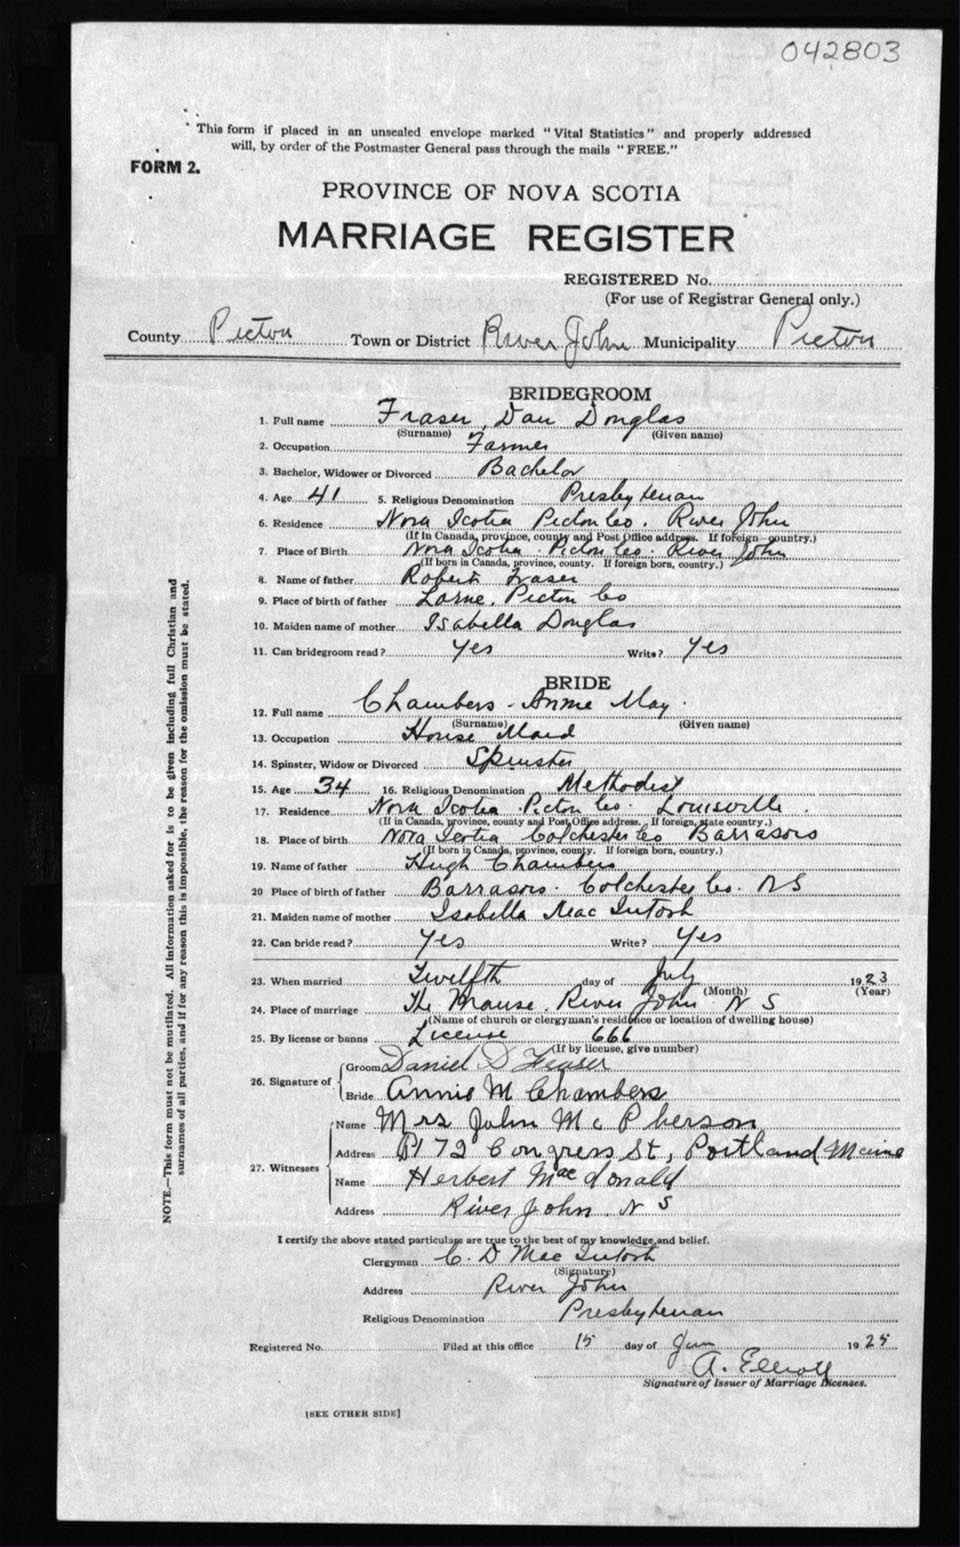 042803
This form if placed in an unsealed envelope marked "Vital Statistics" and properly addressed
will, by order of the Postmaster General pass through the mails "FREE."
FORM 2.
PROVINCE OF NOVA SCOTIA
MARRIAGE REGISTER
REGISTERED No.
(For use of Registrar General only.)
County Pictou Town or District River John Municipality Pictou
BRIDEGROOM
1. Full name Fraser, Dan Douglas
(Surname) (Given name)
2. Occupation Farmer
3. Bachelor, Widower or Divorced Bachelor
4. Age 41 5. Religious Denomination Presbyterian
6. Residence Nova Scotia Pictou Co. River John
(If in Canada, province, county and Post Office address. If foreign—country.)
7. Place of Birth Nova Scotia. Pictou Co. River John
(If born in Canada, province, county. If foreign born, country.)
8. Name of father Robert Fraser
9. Place of birth of father Lorne, Pictou Co
10. Maiden name of mother Isabella Douglas
11. Can bridegroom read? Yes Write? Yes
BRIDE
12. Full name Chambers - Annie May
(Surname) (Given name)
13. Occupation House Maid
14. Spinster, Widow or Divorced Spinster
15. Age 34 16. Religious Denomination Methodist
17. Residence Nova Scotia Pictou Co. Louisville.
(If in Canada, province, county and Post Office address. If foreign, state country.)
18. Place of birth Nova Scotia Colchester Co Barrasois
(If born in Canada, province, county. If foreign born, country.)
19. Name of father Hugh Chambers
20 Place of birth of father Barrasois. Colchester Co. NS
21. Maiden name of mother Isabella MacIntosh
22. Can bride read? Yes Write? Yes
23. When married Twelfth day of July 1923
(Month) (Year)
24. Place of marriage The Manse, River John N S
(Name of church or clergyman's residence or location of dwelling house)
25. By license or banns License 666
(If by license, give number)
26. Signature of Groom Daniel D Fraser
Bride Annie M Chambers
27. Witnesses Name Mrs John McPherson
Address 172 Congress St, Portland Maine
Name Herbert MacDonald
Address River John. N S
I certify the above stated particulars are true to the best of my knowledge and belief.
Clergyman C. D MacIntosh
(Signature)
Address River John
Religious Denomination Presbyterian
Registered No. Filed at this office 15 day of Jan 1925
A. Elliott
Signature of Issuer of Marriage Licenses.
[SEE OTHER SIDE]
NOTE.—This form must not be mutilated. All information asked for is to be given including full Christian and
surnames of all parties, and if for any reason this is impossible, the reason for the omission must be stated.